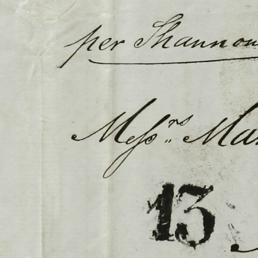 per Shannon
Messrs. Mar
13